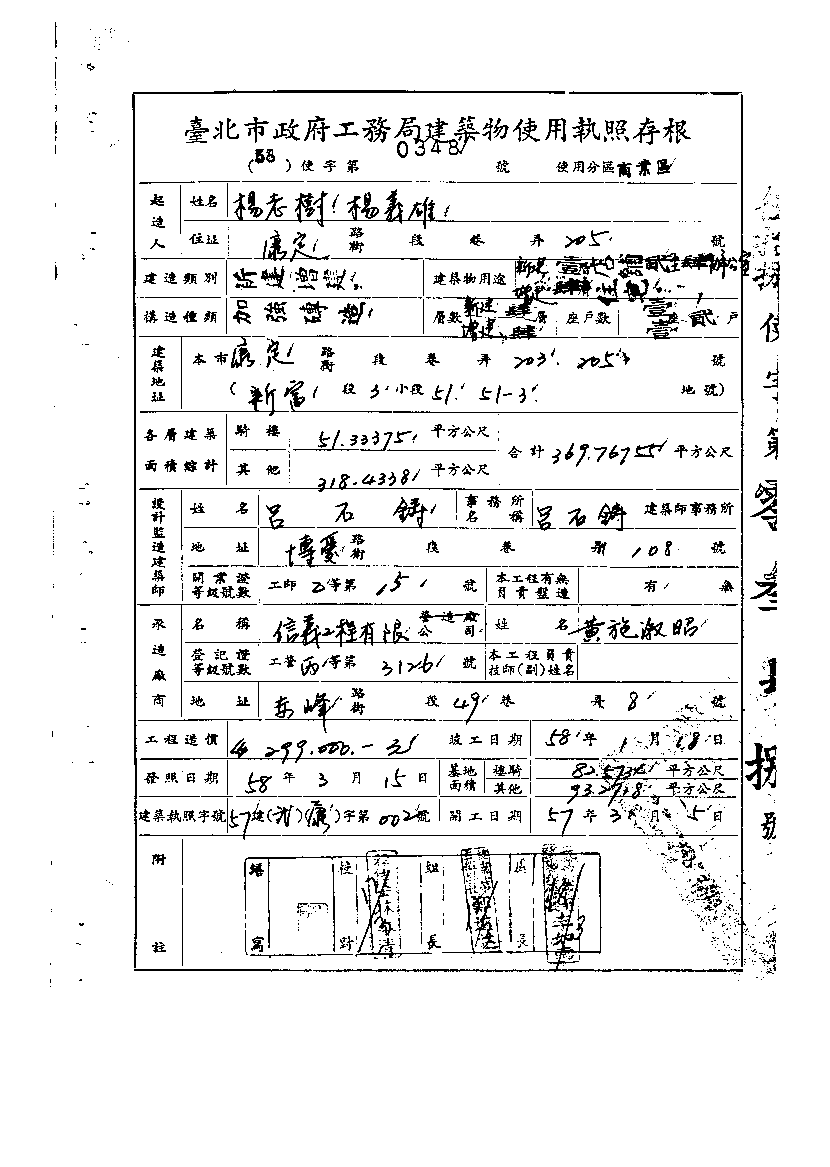 臺北市政府工務局建築物使用執照存根
(58)使字第 0348 號 使用分區 商業區
起造人 姓名 楊老樹 楊義雄
住址 康定 路街 段 巷 弄 205 號
建造類別 新建增設 建築物用途
構造種類 加強磚造 層數 新建 層 增建 座戶數 壹座貳戶
建築地址 本市 康定 路街 段 巷 弄 203、205 號
(新富 段 3 小段 51、51-3 地號)
各層建築面積總計 騎樓 51.33375 平方公尺 合計 369.76755 平方公尺
其他 318.4338 平方公尺
設計監造建築師 姓名 呂石鑄 事務所名稱 呂石鑄 建築師事務所
地址 博愛 路街 段 巷 弄 108 號
開業證等級號數 工師 乙 等第 151 號 本工程有無負責監造 有 無
承造廠商 名稱 信義工程有限 營造廠公司 姓名 黃施淑昭
登記證等級號數 工營 丙 等第 3126 號 本工程負責技師(副)姓名
地址 東峰 路街 段 49 巷 弄 8 號
工程造價 299,000.-元 竣工日期 58 年 1 月 18 日
發照日期 58 年 3 月 15 日 基地面積 騎樓 平方公尺
其他 平方公尺
建築執照字號 57 建( )(康)字第 002 號 開工日期 57 年 3 月 5 日
附註 繕寫 校對 組長 隊長
使字第零叁肆捌號